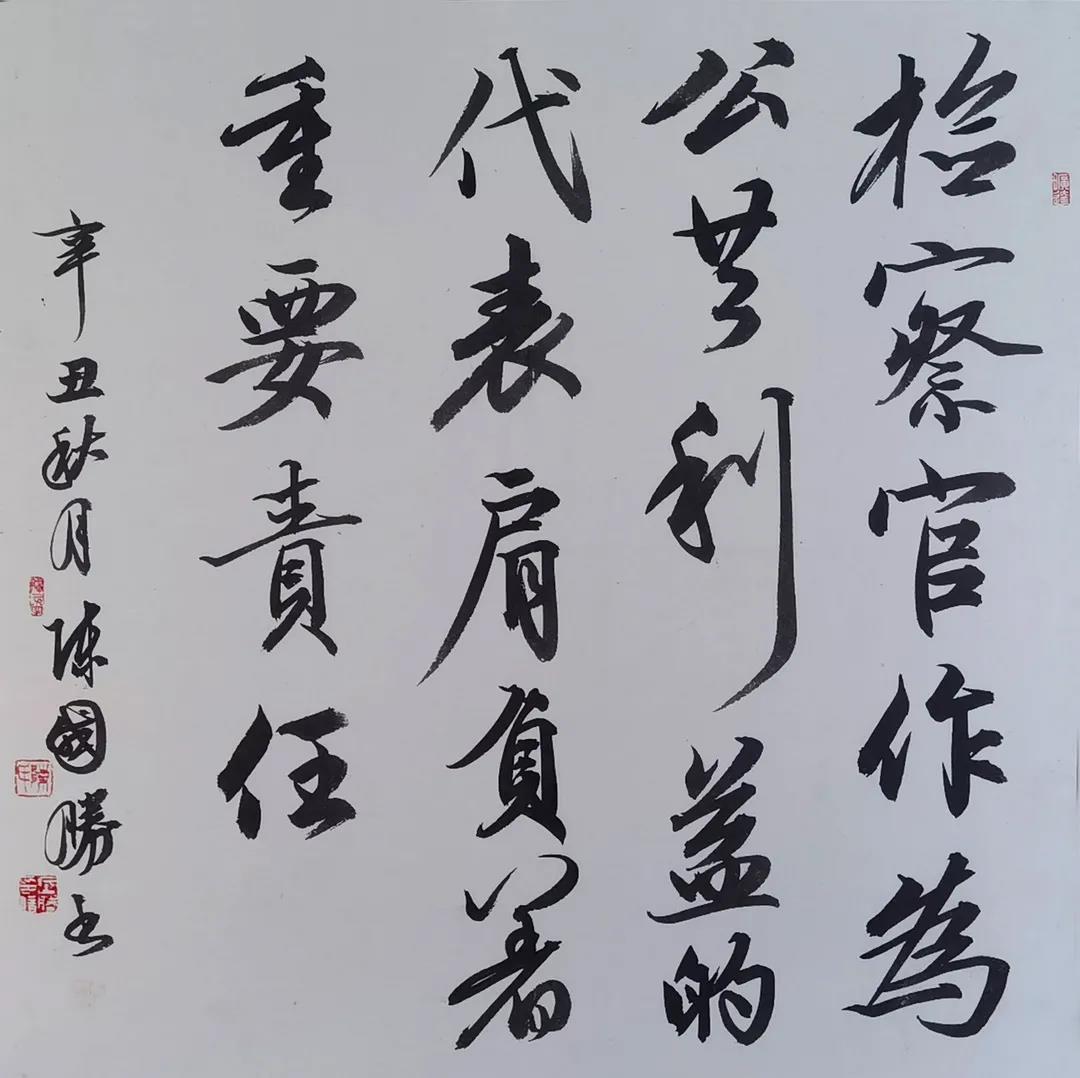 檢察官作為
公共利益的
代表肩負著
重要責任
辛丑秋月陳國勝书